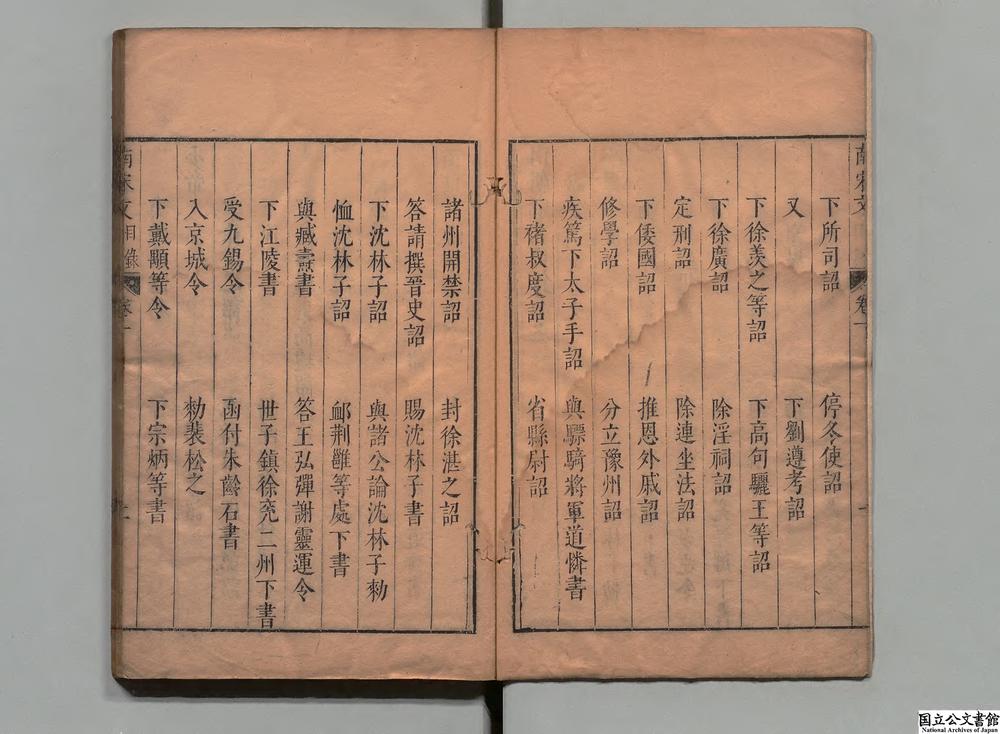 南宋文
卷一
下所司詔　停冬使詔
又　下劉遵考詔
下徐羨之等詔　下高句驪王等詔
下徐廣詔　除淫祠詔
定刑詔　除連坐法詔
下倭國詔　推恩外戚詔
修學詔　分立豫州詔
疾篤下太子手詔　與驃騎將軍道憐書
下褚叔度詔　省縣尉詔
諸州開禁詔　封徐湛之詔
答請撰晉史詔　賜沈林子書
下沈林子詔　與諸公論沈林子勑
恤沈林子詔　䘏荆雝等處下書
與臧燾書　答王弘彈謝靈運令
下江陵書　世子鎮徐兗二州下書
受九錫令　函付朱齡石書
入京城令　勑裴松之
下戴顒等令　下宗炳等書
南宋文目錄
卷一
国立公文書館
National Archives of Japan